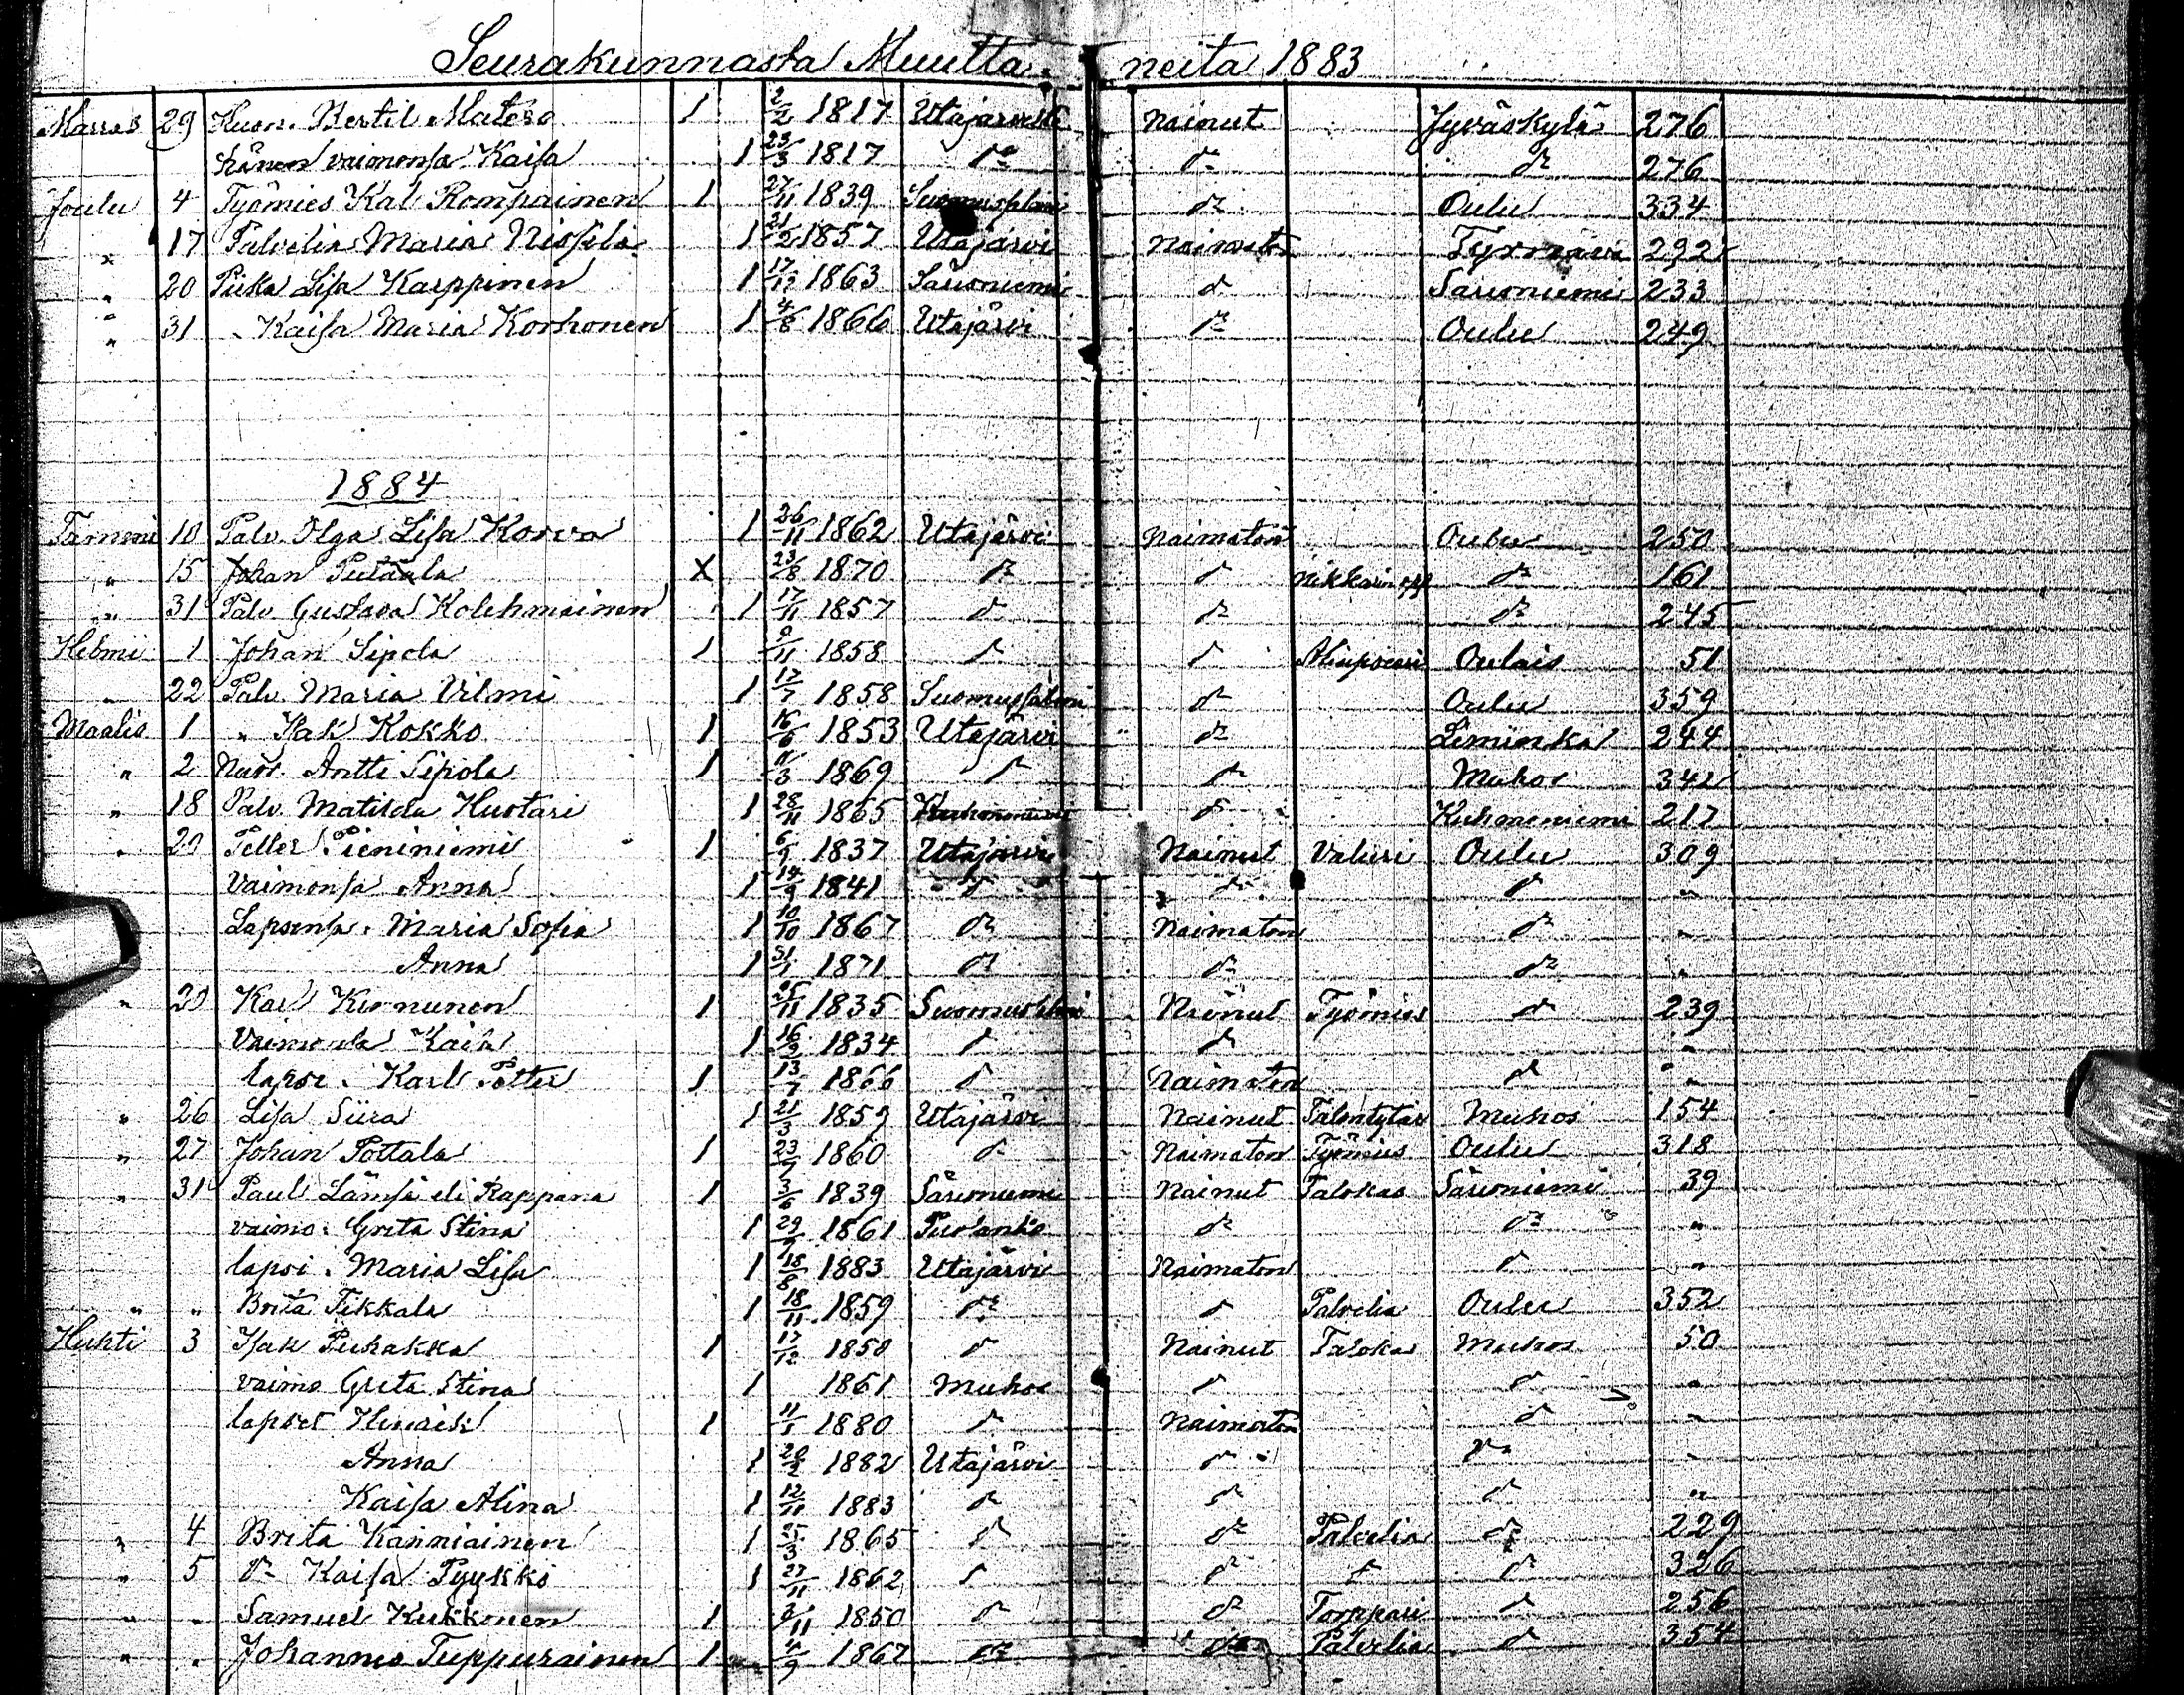 Seurakunnasta Muuttaneita 1883
Marras 29 Huon. Bertil Matero 1 2/2 1817 Utajärvelä Nainut Jyväskylä 276
hänen vaimonsa Kaisa 1 23/3 1817 do do do 276
Joulu 4 Työmies Kal Romppainen 1 27/11 1839 Suomuslmi do Oulu 334
" 17 Palvelia Maria Nissilä 1 21/2 1857 Utajärvi Naimaton Tyrnävä 292
" 20 Piika Lisa Karppinen 1 17/12 1863 Säresniemi do Säresniemi 233
" 31 " Kaisa Maria Korhonen 1 4/8 1866 Utajärvi do Oulu 249
1884
Tammi 10 Palv. Olga Lisa Korva 1 26/11 1862 Utajärvi Naimaton Oulu 250
" 15 Johan Pietäälä X 23/8 1870 do do nikkarin opp do 161
" 31 Palv Gustava Kolehmainen 1 17/11 1857 do do do 245
Helmi 1 Johan Sipola 1 9/11 1858 do do Aliupseeri Oulais 51
" 22 Palv Maria Vilmi 1 17/7 1858 Suomussalmi do Oulu 359
Maalis 1 " Isak Kokko 1 16/6 1853 Utajärvi do Liminka 244
" 2 Nuor. Antti Sipola 1 11/3 1869 do do Muhos 342
" 18 Palv. Matilda Huotari 1 28/11 1865 Kuhmoniemi do Kuhmoniemi 217
" 20 Petter Pieniniemi 1 6/1 1837 Utajärvi Nainut Valuri Oulu 309
Vaimonsa Anna 1 14/9 1841 do do do "
Lapsensa. Maria Sofia 1 10/10 1867 do Naimaton do "
Anna 1 31/1 1871 do do do "
" 20 Karl Kinnunen 1 25/11 1835 Suomuslmi Nainut Työmies do 239
Vaimonsa Kaisa 1 16/9 1834 do do "
lapsi. Karl Petter 1 13/7 1866 do Naimaton do "
" 26 Lisa Siira 1 21/3 1859 Utajärvi Nainut Talontytär Muhos 154
" 27 Johan Pottala 1 23/7 1860 do Naimaton Työmies Oulu 318
" 31 Paul Lämsä eli Rappana 1 3/6 1839 Säresniemi Nainut Talokas Säresniemi 39
vaimo: Greta Stina 1 29/9 1861 Puolanko do do "
lapsi. Maria Lisa 1 18/8 1883 Utajärvi Naimaton do "
" " Brita Tikkala 1 18/11 1859 do do Palvelia Oulu 352
Huhti 3 Isak Puhakka 1 17/12 1850 do Nainut Talokas Muhos 50
vaimo Greta Stina 1 1861 Muhos do do "
lapset Henrick 1 11/1 1880 do Naimaton do "
Anna 1 28/2 1882 Utajärvi do do "
Kaisa Alina 1 12/11 1883 do do do "
" 4 Brita Kanniainen 1 25/3 1865 do do Palvelia do 229
" 5 do Kaisa Pyykkö 1 27/11 1862 do do do do 326
" " Samuel Kukkonen 1 3/11 1850 do do Torppari do 256
" " Johannes Tuppurainen 1 4/9 1867 do do Palvelia do 354